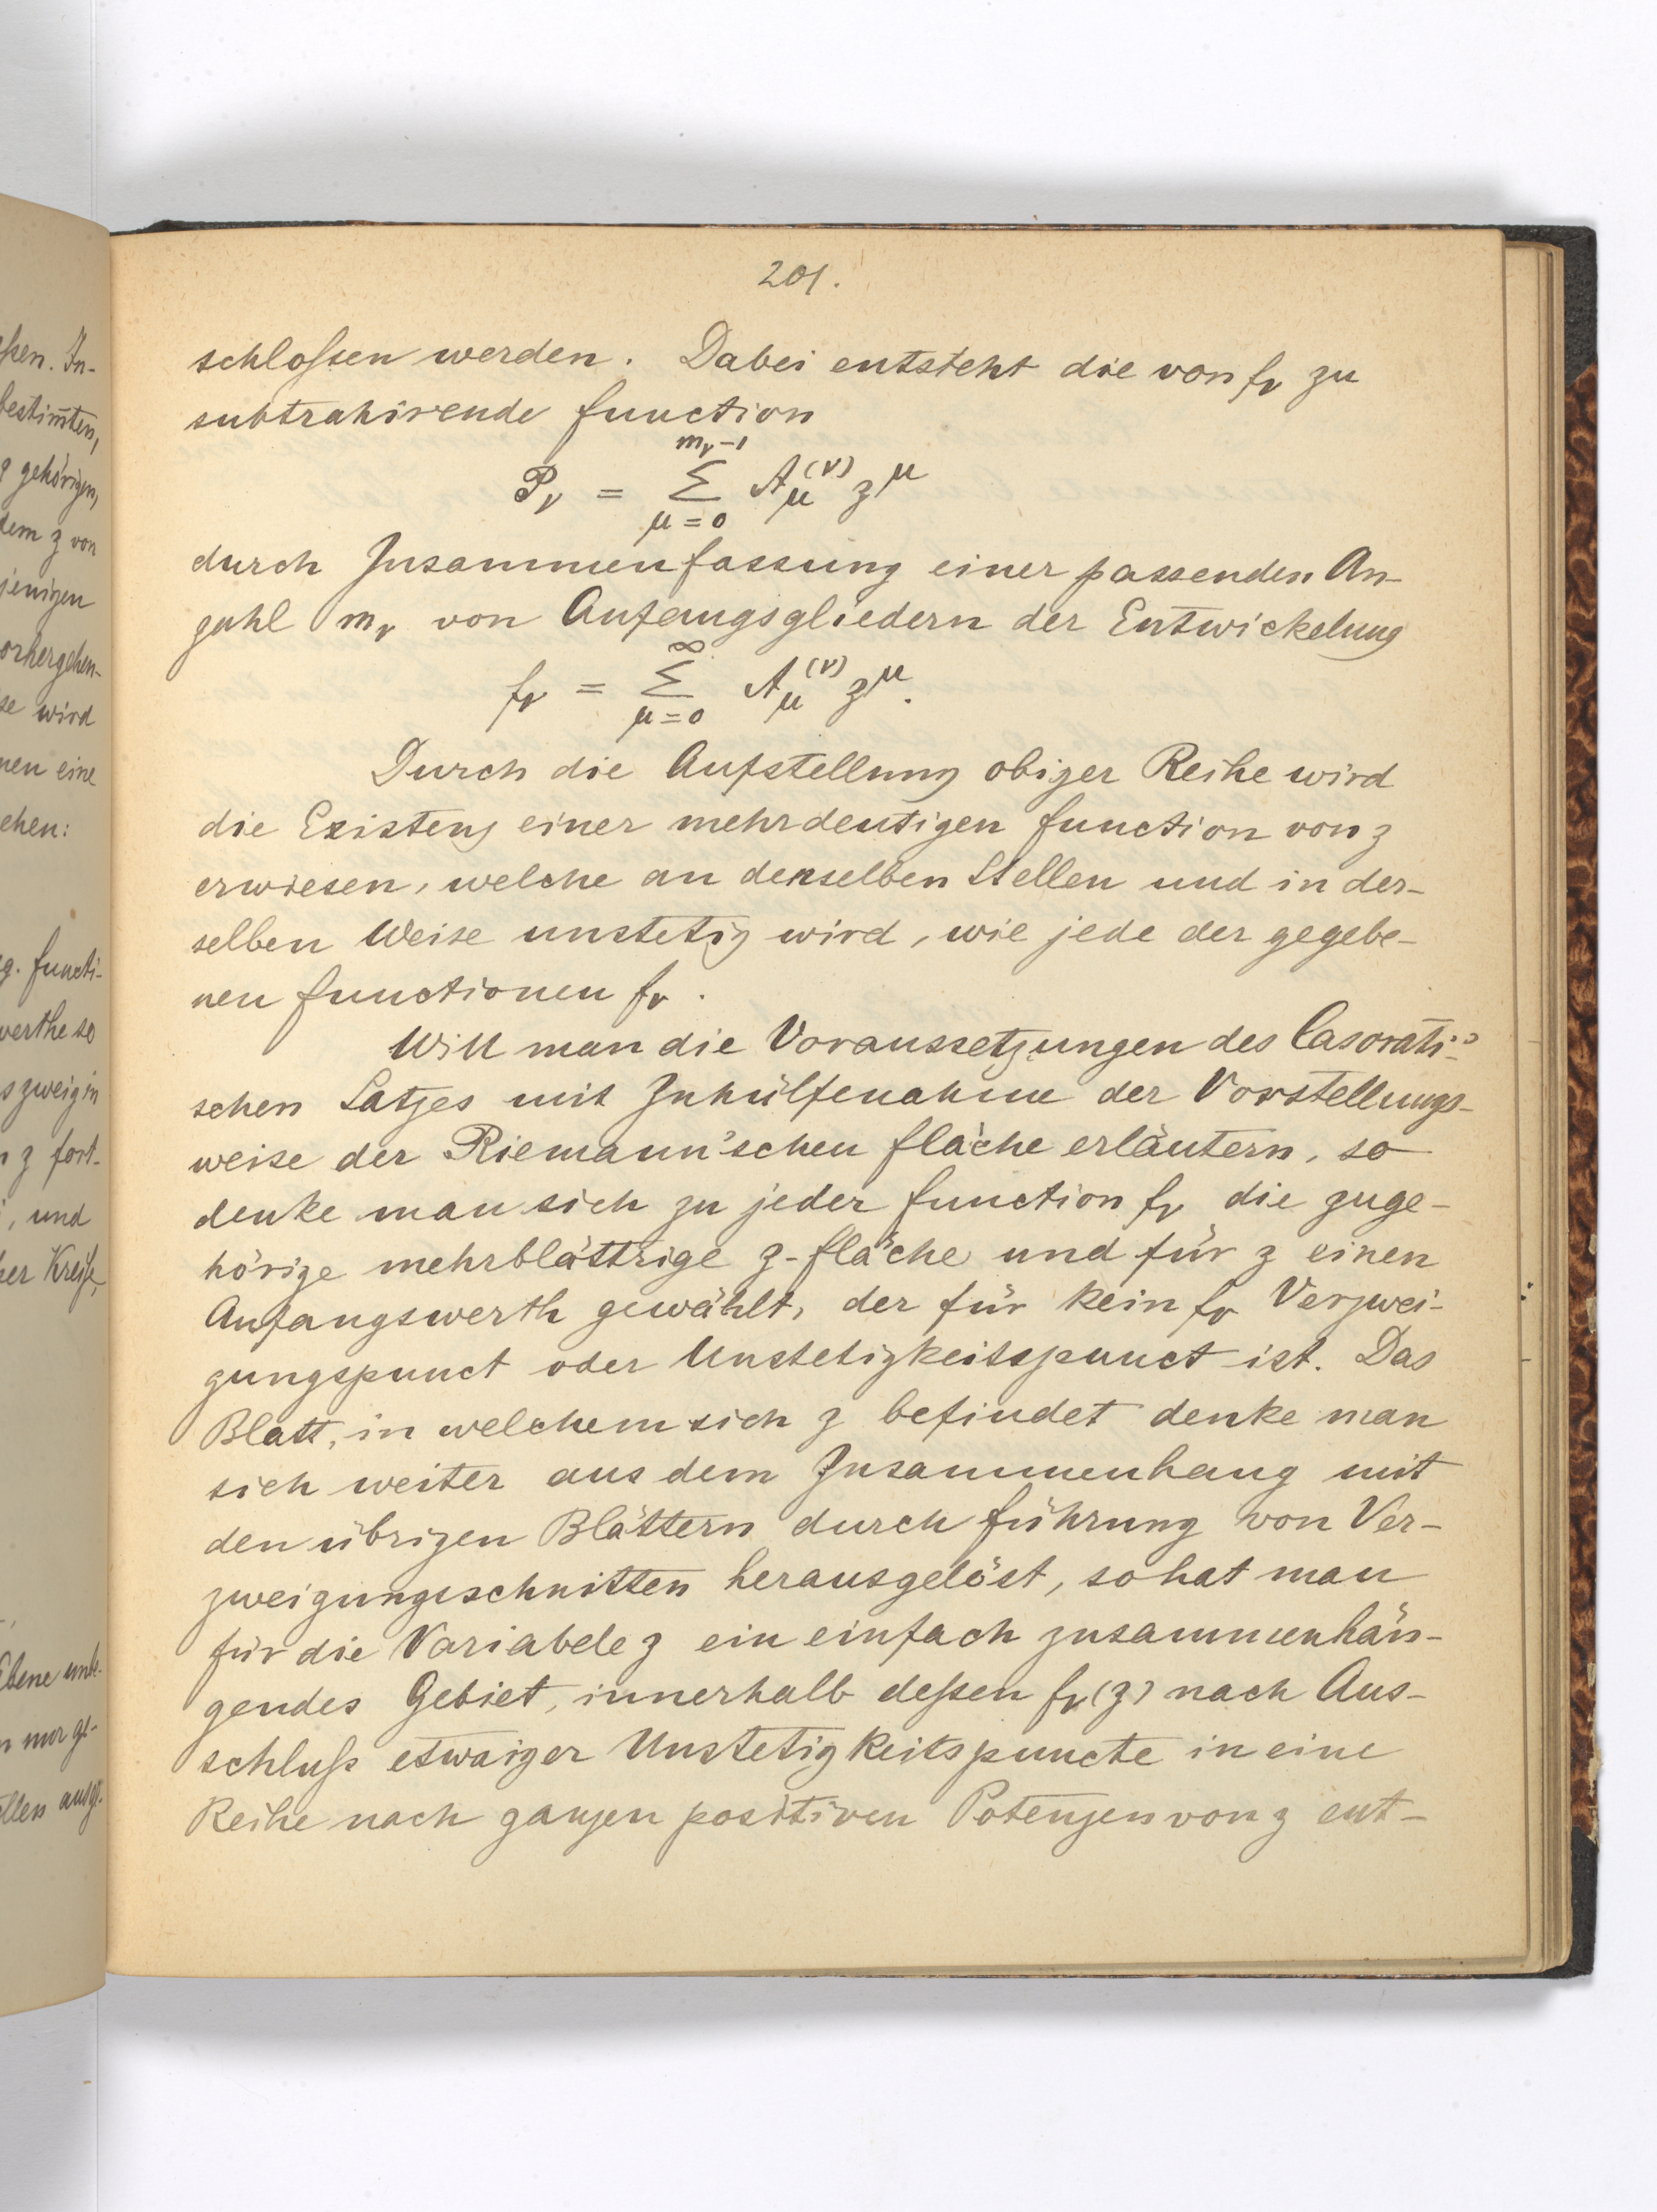 ßen. In-
bestim̅ten,
gehörigen,
dem z von
jenigen
orhergehen-
se wird
nen eine
ehen:
g. Functi-
werthe so
s zweig in
z fort-
, und
her Kreise,
Ebene unbe-
n nur ge-
ellen ausg.
201.
schloßen werden. Dabei entsteht die von fᵥ zu
subtrahirende Function
Pᵥ = Σ_{μ=0}^{mᵥ-1} A_μ^{(ν)} z^μ
durch Zusammenfassung einer passenden An-
zahl mᵥ von Anfangsgliedern der Entwickelung
fᵥ = Σ_{μ=0}^{∞} A_μ^{(ν)} z^μ.
Durch die Aufstellung obiger Reihe wird
die Existenz einer mehrdeutigen Function von z
erwiesen, welche an denselben Stellen und in der-
selben Weise unstetig wird, wie jede der gegebe-
nen Functionen fᵥ.
Will man die Voraussetzungen des Casorati'-
schen Satzes mit Zuhülfenahme der Vorstellungs-
weise der Riemann'schen Fläche erläutern, so
denke man sich zu jeder Function fᵥ die zuge-
hörige mehrblättrige z-Fläche und für z einen
Anfangswerth gewählt, der für kein fᵥ Verzwei-
gungspunct oder Unstetigkeitspunct ist. Das
Blatt, in welchem sich z befindet denke man
sich weiter aus dem Zusammenhang mit
den übrigen Blättern durch Führung von Ver-
zweigungsschnitten herausgelöst, so hat man
für die Variabele z ein einfach zusammenhän-
gendes Gebiet, innerhalb deßen fᵥ(z) nach Aus-
schluß etwaiger Unstetigkeitspuncte in eine
Reihe nach ganzen positiven Potenzen von z ent-